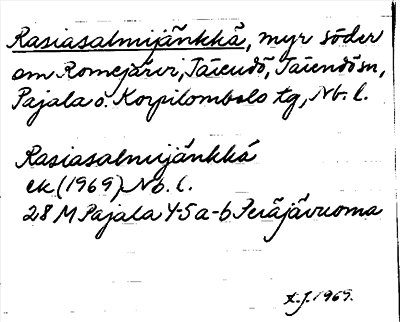 Rasiasalmijänkkä, myr söder
om Romejärvi, Täiendö, Täiendösn,
Pajala o. Korpilombolo tg, Nb. l.
Rasiasalmijänkkä
ek (1969) Nb. l.
28 M Pajala 4-5 a-b Peräjävuoma
1969.